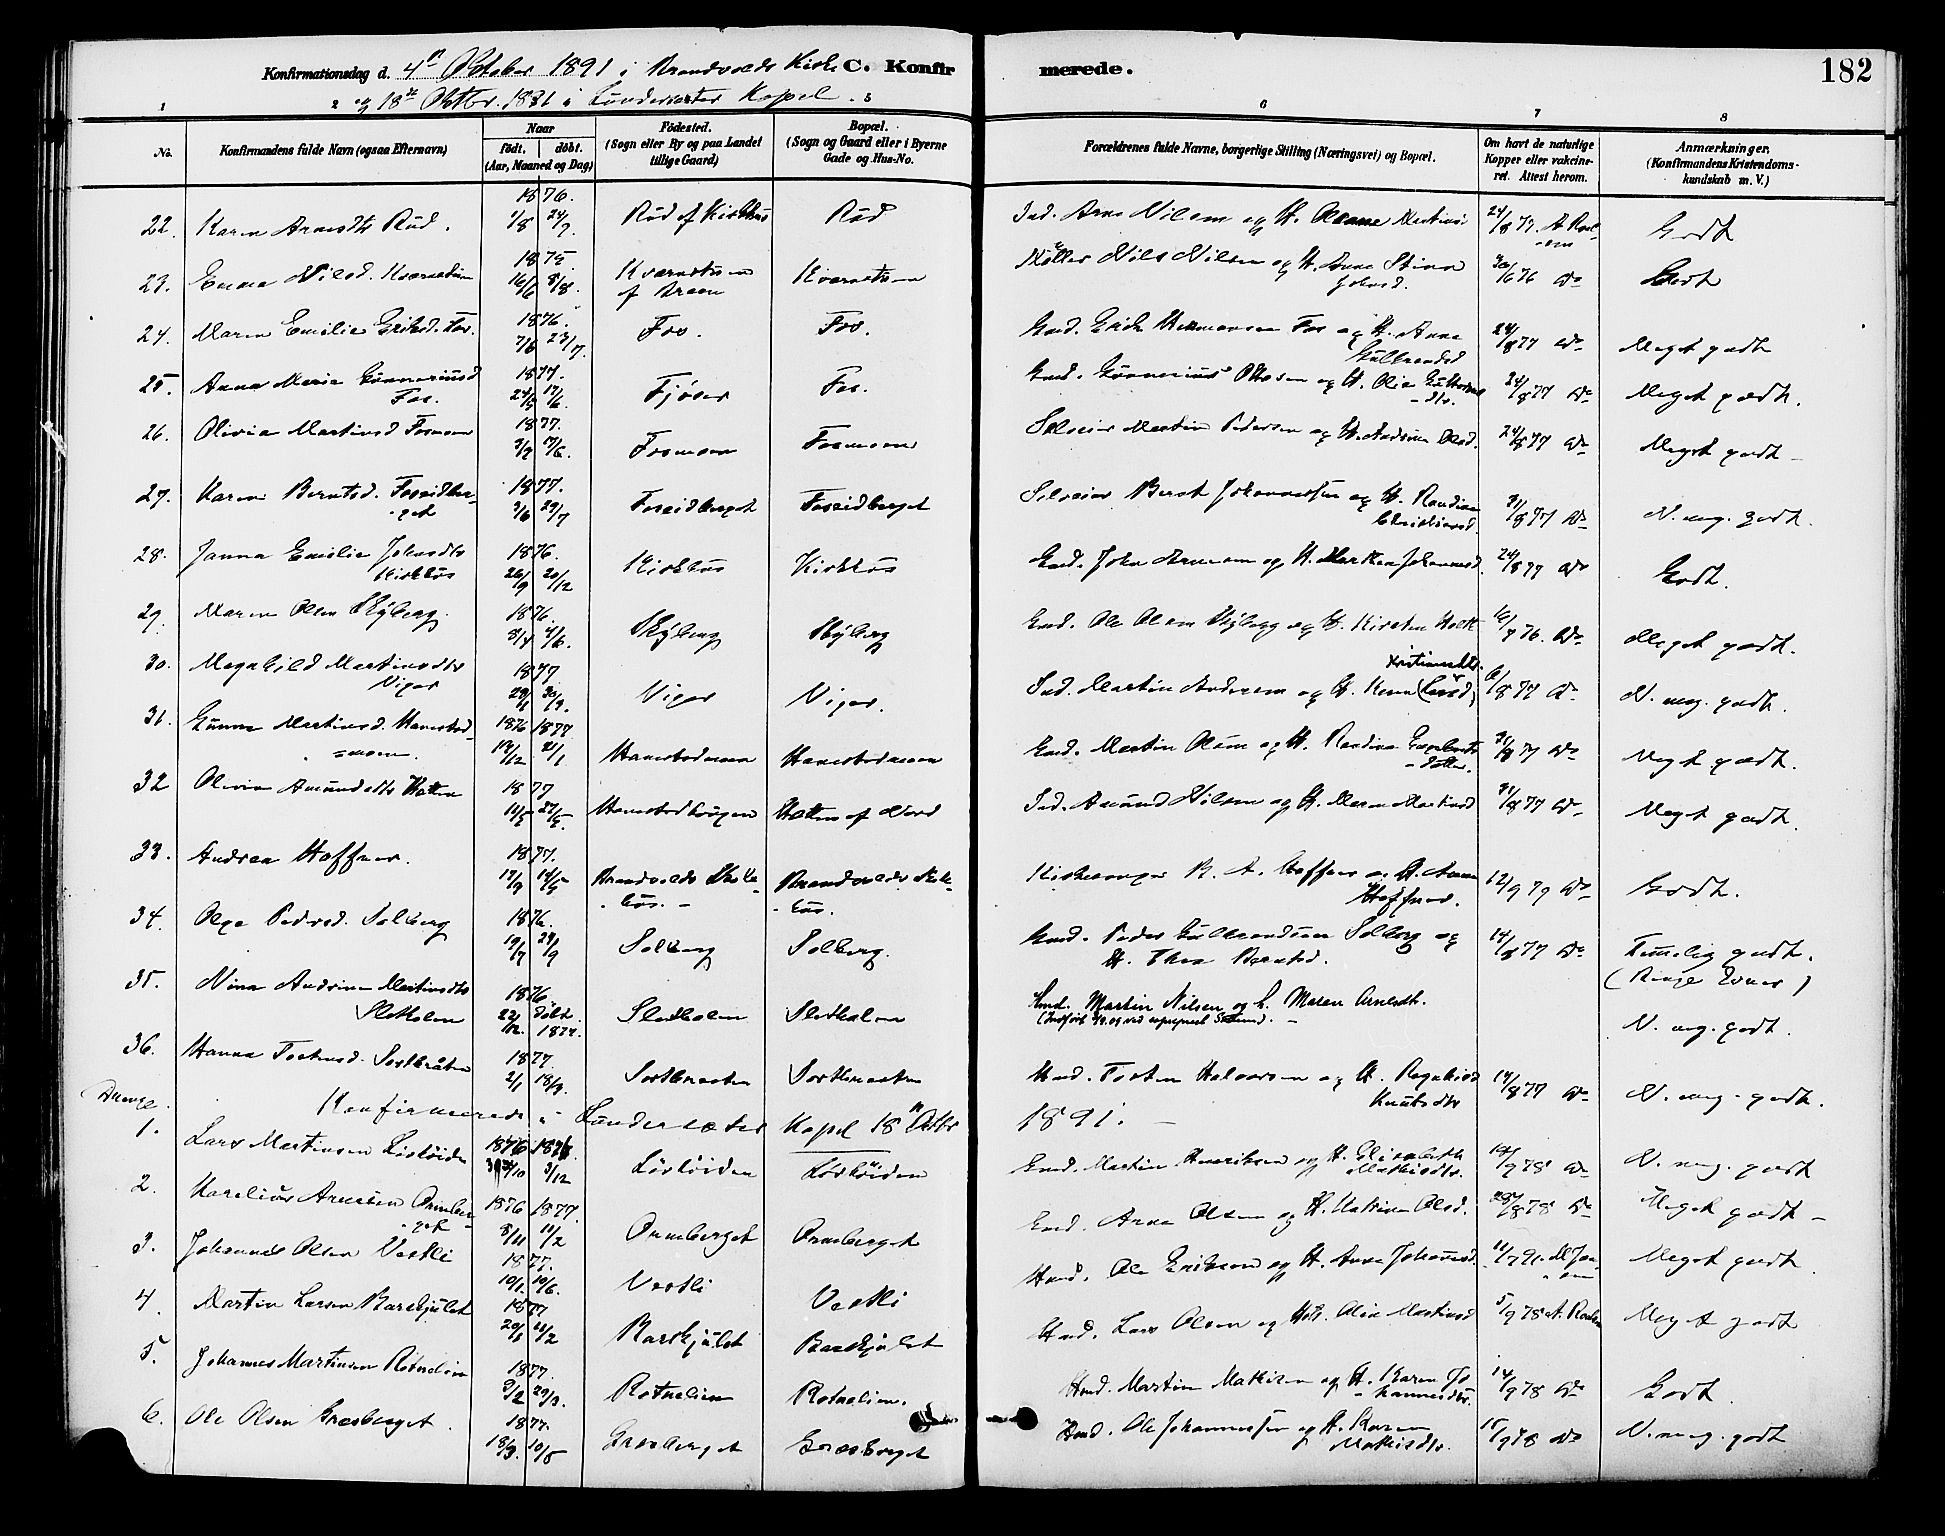 182
Konfirmationsdag d. 4de Oktober 1891 i Brandvolds Kirke C. Konfirmerede.
og 18de Oktbr. 1891 i Lundersæter Kapel.
1 2 5 6 7 8
No. Konfirmandens fulde Navn (ogsaa Efternavn) Naar født. døbt. (Aar, Maaned og Dag) Fødested. (Sogn eller By og paa Landet tillige Gaard) Bopæl. (Sogn og Gaard eller i Byerne Gade og Hus-No. Forældrenes fulde Navne, borgerlige Stilling (Næringsvei) og Bopæl. Om havt de naturlige Kopper eller vaccineret. Attest herom. Anmærkninger. (Konfirmandens Kristendomskundskab m. V.)
1876.
22. Karen Arnesdtr Rud. 1/8 24/9 Rud af Kirkhus Rud Ind. Arne Nilsen og H. Martinsd 24/8 77. Godt
1875
23. Emma Nilsd. Kværnstuen 16/6 8/8. Kværnstuen Kværnstuen Møller Nils Nilsen og H. Anne Stina 30/6 76 Do Godt
Johnsd.
1876.
24. Maren Emilie Eriksd. Fos. 7/6 23/7. Fos. Fos. Gmd. Erik Hermansen Fos og H. Anne 24/8 77 Do Meget godt
Gulbrandsd
1877.
25. Anna Marie Gunneriusd 24/5 17/6. Fjøser Fos. Gmd. Gunnerius Olsen og H. Olia 24/8 77 Do Meget godt.
Fos.
1877.
26. Olivia Martinsd Fosmoen Fosmoen Fosmoen Selveier Martin Pedersen og H. Andrine Olsd. 24/8 77 Do Meget godt
1877.
27. Karen Berntsd. Foseidber- 3/6 29/7 Foseidberget Foseidberget Selveier Bernt Johannessen og H. Randine 31/8 77 Do N. meg. godt.
get Christiansd.
1876.
28. Janna Emilie Johnsdtr 26/9 20/12 Kirkhus Kirkhus Gmd. John Arnesen og H. Marthea Johannesd. 24/8 77 Do Godt.
Kirkhus
1876.
29. Maren Olsen Skyberg. 8/4 4/6. Skyberg Skyberg Gmd. Ole Olsen Skyberg og H. Kirsten Holt 76. Do Meget godt.
30. Magnhild Martinsdtr 1877 Viger Viger. Ind. Martin Andersen og H. Karen 8 77 Do N. meg. godt.
Viger
1876 1877
31. Gunna Martinsd. Hanestad- 13/12 21/1 Hanestadmoen Hanestadmoen Gmd. Martin Olsen og H. Randine 31/8 77 Do Meget godt.
moen. datter.
1877
32 Olivia Amundsdtr Hatten 27/5. Hanestadhaugen Hatten af Nord Ind. Amund Nilsen og H. Maren Martinsd 31/8 77 Do Meget godt.
1877.
33. Andrea Hoffner. Brandvolds Skole- Brandvolds Skole- Kirkesanger H. A. Hoffner og H. Anna 12/9 79 Do Godt.
hus. hus. Hoffner.
1876.
34. Olga Pedersd. Solberg 19/7 24/9 Solberg Solberg. Gmd. Peder Gulbrandsen Solberg og 14/8 77 Do Temmelig godt.
H. Thea Berntsd. (Ringe Evner)
35. Nina Andrine Martinsdtr 1876
Slotholen 22/12 døbt 1877. Slotholen Slotholen Gmd. Martin Nilsen og H. Maren Arnesdtr. N. meg. godt.
36. Hanna Tostensd. Sortbråten 1877 2/1 18/3. Sortbraaten Sortbraaten Hmd. Tosten Halvorsen og H. Ragnhild 14/8 77 Do N. meg. godt.
Knutsdtr
Drenge. Konfirmerede i Lundersæter Kapel 18de Oktbr 1891.
1. Lars Martinsen Løvhøiden 1876 1876. 3/12 Løvhøiden Løvhøiden Gmd. Martin Henriksen og H. Elisabeth 14/9 78 Do N. meg. godt
Mathisdtr.
2. Karelius Arnesen Ormber- 1876 1877. 8/11 11/2 Ormberget Ormberget Gmd. Arne Olsen og H. Katrine Olsd. 28/8 78 Do Meget godt
get
3. Johannes Olsen Vestli 1877. 10/1 10/6. Vestli Vestli Hmd. Ole Eriksen og H. Anne Johannesd. Meget godt
4. Martin Larsen Barskjulet 1877 20/1 11/2 Barskjulet Barskjulet Hmd. Lars Olsen og H. Olia Martinsd 5/9 78 Meget godt
5. Johannes Martinsen Rotnelien 1877. Rotnelien Rotnelien. Hmd. Martin Mathisen og H. Karen Jo- 14/9 78 Do Godt.
hannesdtr.
6. Ole Olsen Græsberget. 1877. 18/3. 10/5 Græsberget Græsberget Hmd. Ole Johannessen og H. Karen 15/9 78 Do N. meg. godt
Mathisdtr.